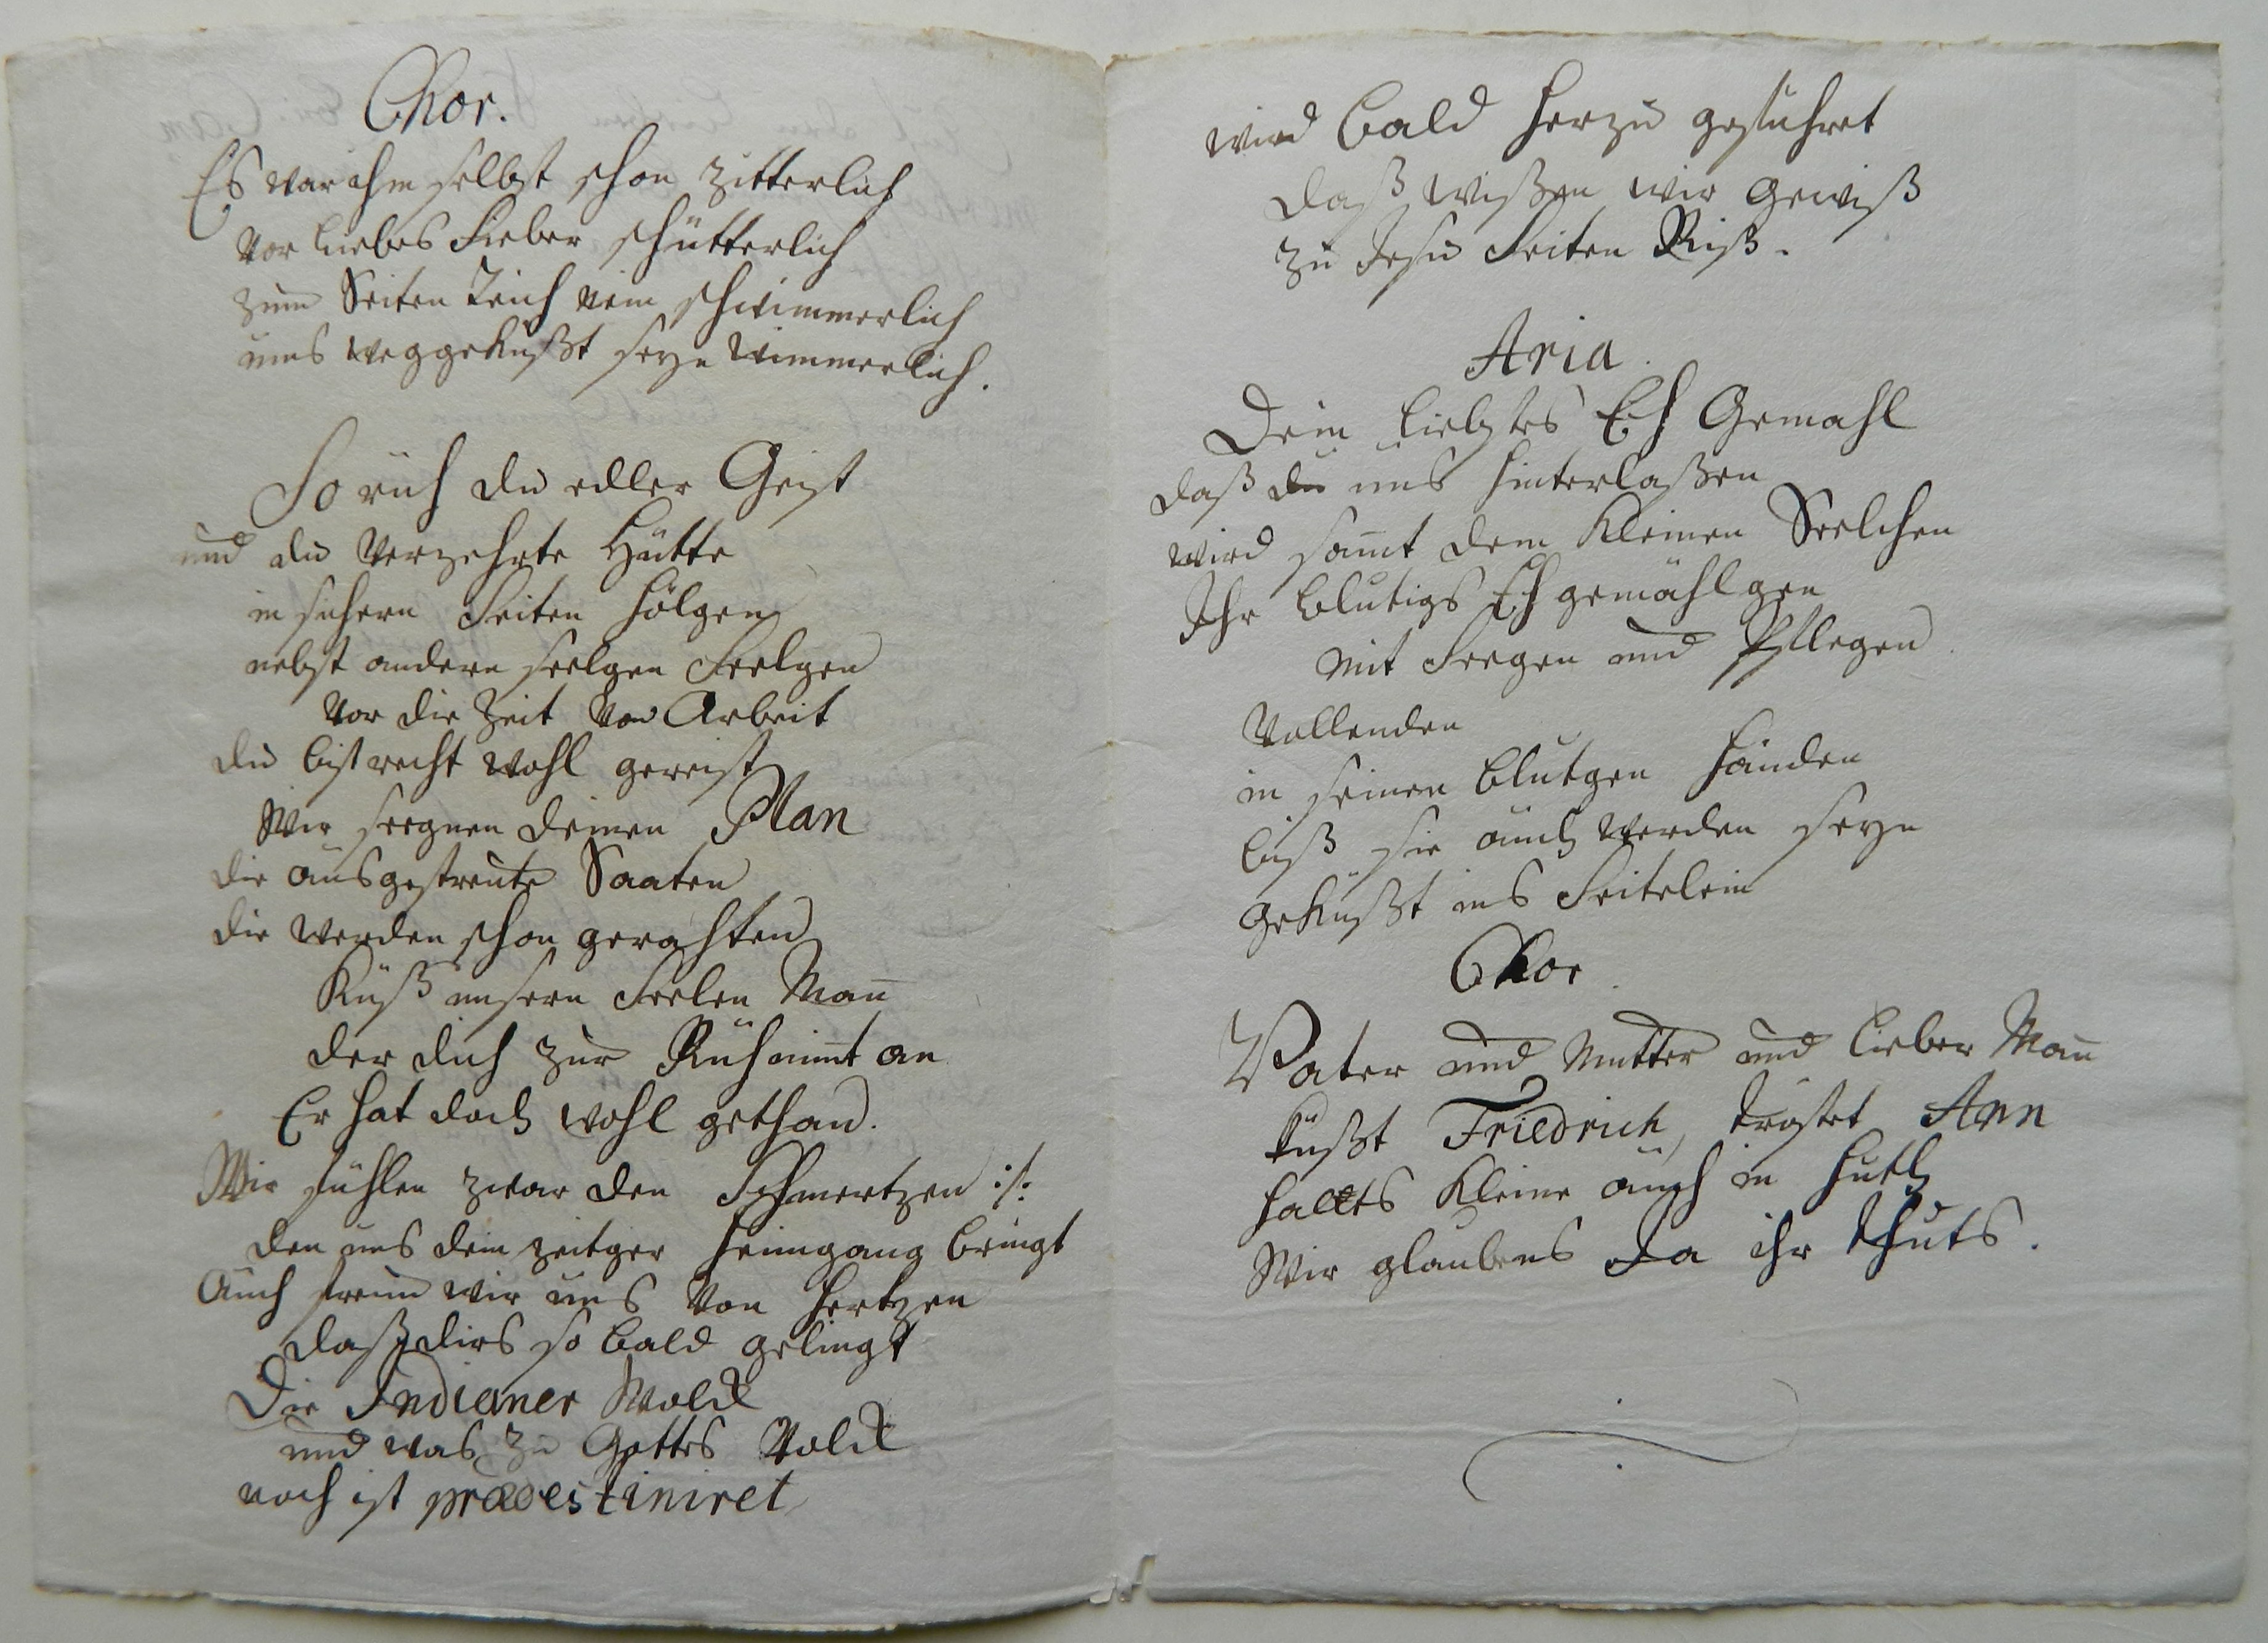 Chor.
Es war ihm selbst schon zitterlich
vor Liebes Fieber schütterlich
zum Seiten Teich nein schwimmerlich
ums weggeküßt seyn wimmerlich.
So ruh du edler Geist
und du verzehrte Hütte
in sichern Seiten Hölgen
nebst andern seelgen Seelgen
vor die Zeit von Arbeit
du bist recht wohl gereist
Wir seegnen deinen Plan
die ausgestreute Saaten
die werden schon gerathen
Küß unsern Seelen Mañ
der dich zur Ruh nim̃t an
Er hat doch wohl gethan.
Wir fühlen zwar den Schmertzen :/:
den uns dein zeitger Heimgang bringt
Auch freun wir uns von Hertzen
daß dirs so bald gelingt
Die Indianer Wolck
und was zu Gottes Volck
noch ist prædestiniret
wird bald herzu geführet
daß wißen wir gewiß
zu Jesu Seiten Riß.
Aria.
Dein liebstes Eh Gemahl
daß du uns hinterlaßen
wird sam̃t dem Kleinen Seelchen
Ihr blutigs Ehgemählgen
mit Seegen und Pflegen
Vollenden
in seinen blutgen Händen
biß sie auch werden seyn
geküßt ins Seitelein
Chor.
Vater und Mutter und lieber Mañ
küßt Friedrich, tröstet Ann
hallts Kleine auch in Huth
Wir glaubens Ja ihr thuts.